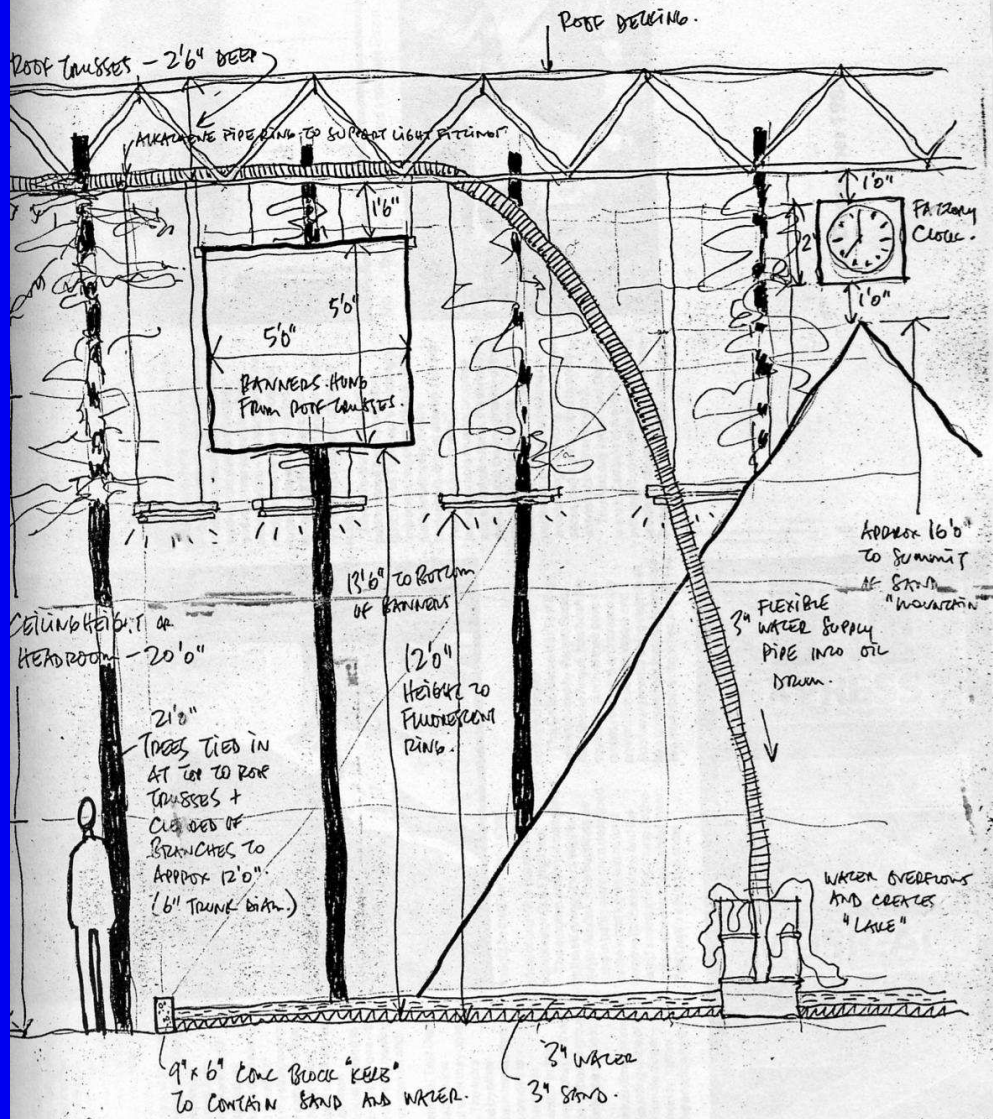 ROOF DECKING.
ROOF TRUSSES - 2'6" DEEP
ALKATHENE PIPE RING TO SUPPORT LIGHT FITTINGS
1'0"
1'6"
FACTORY
CLOCK.
2'
1'0"
5'0"
5'0"
BANNERS HUNG
FROM ROOF TRUSSES.
APPROX 16'0"
TO SUMMIT
OF SAND
"MOUNTAIN
13'6" TO BOTTOM
OF BANNERS
CEILING HEIGHT OR
HEADROOM - 20'0"
3" FLEXIBLE
WATER SUPPLY
PIPE INTO OIL
DRUM.
12'0"
HEIGHT TO
FLUORESCENT
RING.
21'0"
TREES TIED IN
AT TOP TO ROOF
TRUSSES +
OF
BRANCHES TO
APPROX 12'0".
(6" TRUNK DIAM.)
WATER OVERFLOWS
AND CREATES
"LAKE"
9" x 6" CONC BLOCK "KERB"
TO CONTAIN SAND AND WATER.
3" WATER
3" SAND.